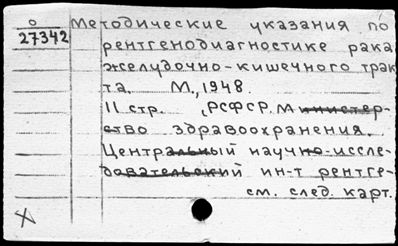 О
27342
Методические указания по
рентгенодиагностике рака
желудочно-кишечного трак
та. М., 1948.
11 стр. (РСФСР. Министер-
ство здравоохранения.
Центральный научно-иссле-
довательский ин-т рентге-
см. след. карт.